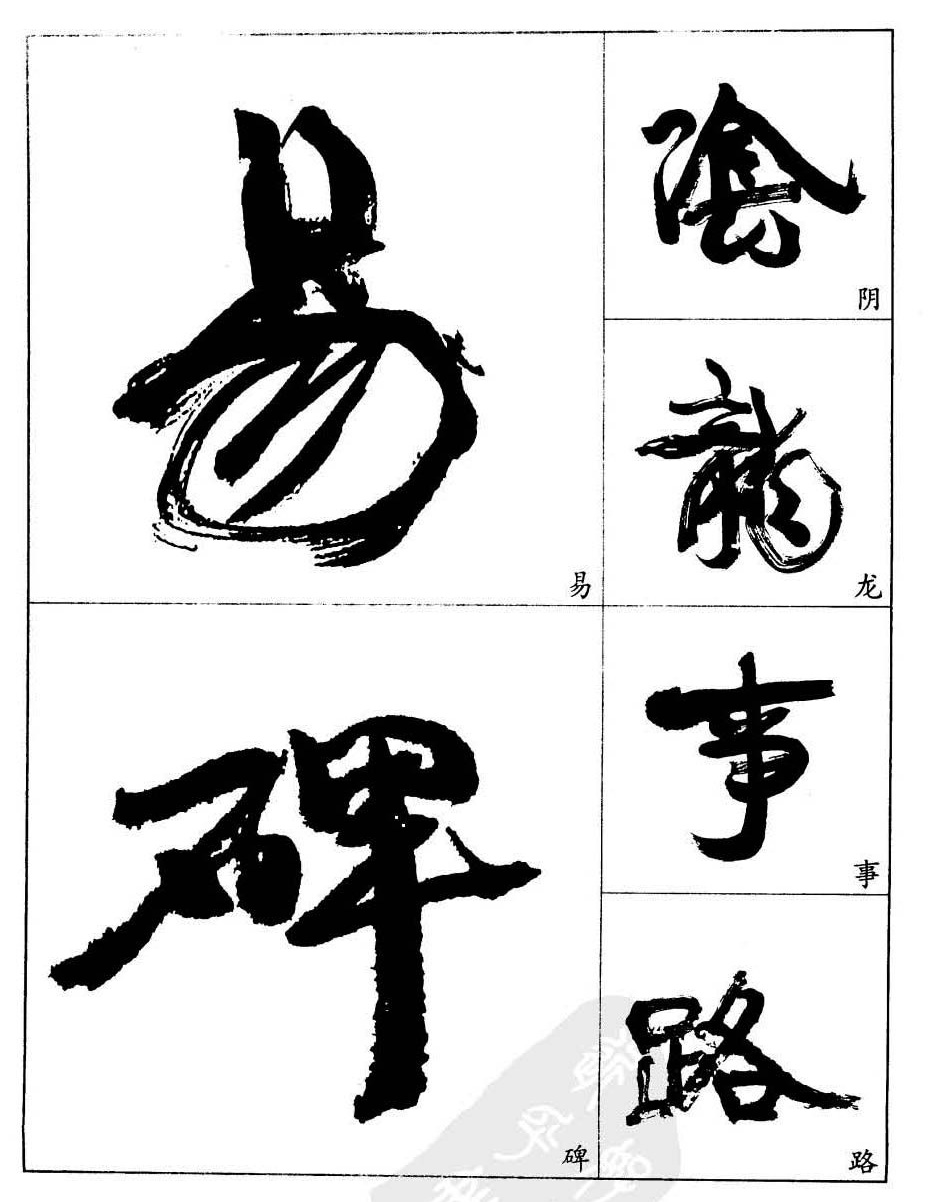 易
易
碑
碑
陰
阴
龍
龙
事
事
路
路